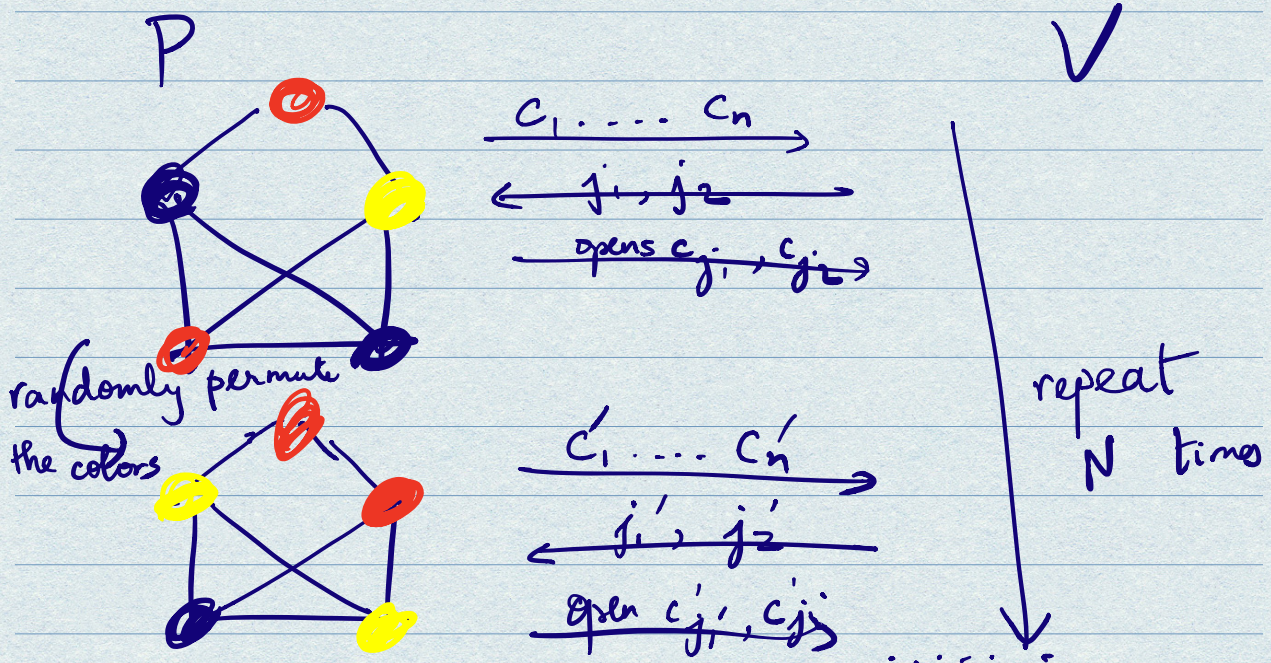 P
V
C₁..... Cₙ
j₁, j₂
opens c_j₁, c_j₂
randomly permute
the colors
repeat
N times
C₁'..... Cₙ'
j₁', j₂'
open c'_j₁', c'_j₂'